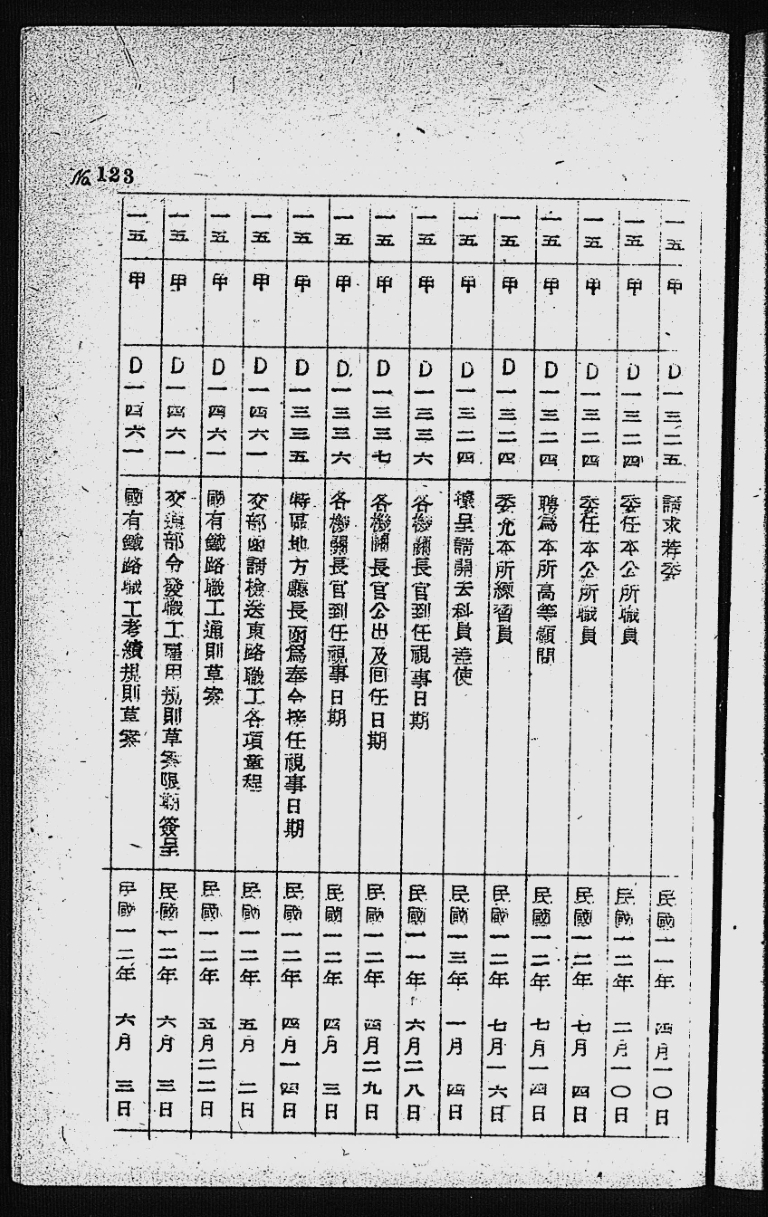 No 123
一五 甲 D一三二五 請求荐委 民國一一年 四月一〇日
一五 甲 D一三二四 委任本公所職員 民國一二年 二月一〇日
一五 甲 D一三二四 委任本公所職員 民國一二年 七月 四日
一五 甲 D一三二四 聘爲本所高等顧問 民國一二年 七月一四日
一五 甲 D一三二四 委充本所練習員 民國一二年 七月一六日
一五 甲 D一三二四 呈請開去科員差使 民國一三年 一月 四日
一五 甲 D一三三六 各機關長官到任視事日期 民國一一年 六月二八日
一五 甲 D一三三七 各機關長官公出及回任日期 民國一二年 四月二九日
一五 甲 D一三三六 各機關長官到任視事日期 民國一二年 四月 三日
一五 甲 D一三三五 特區地方廳長函爲奉令接任視事日期 民國一二年 四月一四日
一五 甲 D一四六一 交部函請檢送東路職工各項章程 民國一二年 五月 二日
一五 甲 D一四六一 國有鐵路職工通則草案 民國一二年 五月二二日
一五 甲 D一四六一 交通部令發職工雇用規則草案限期簽呈 民國一二年 六月 三日
一五 甲 D一四六一 國有鐵路職工考績規則草案 民國一二年 六月 三日